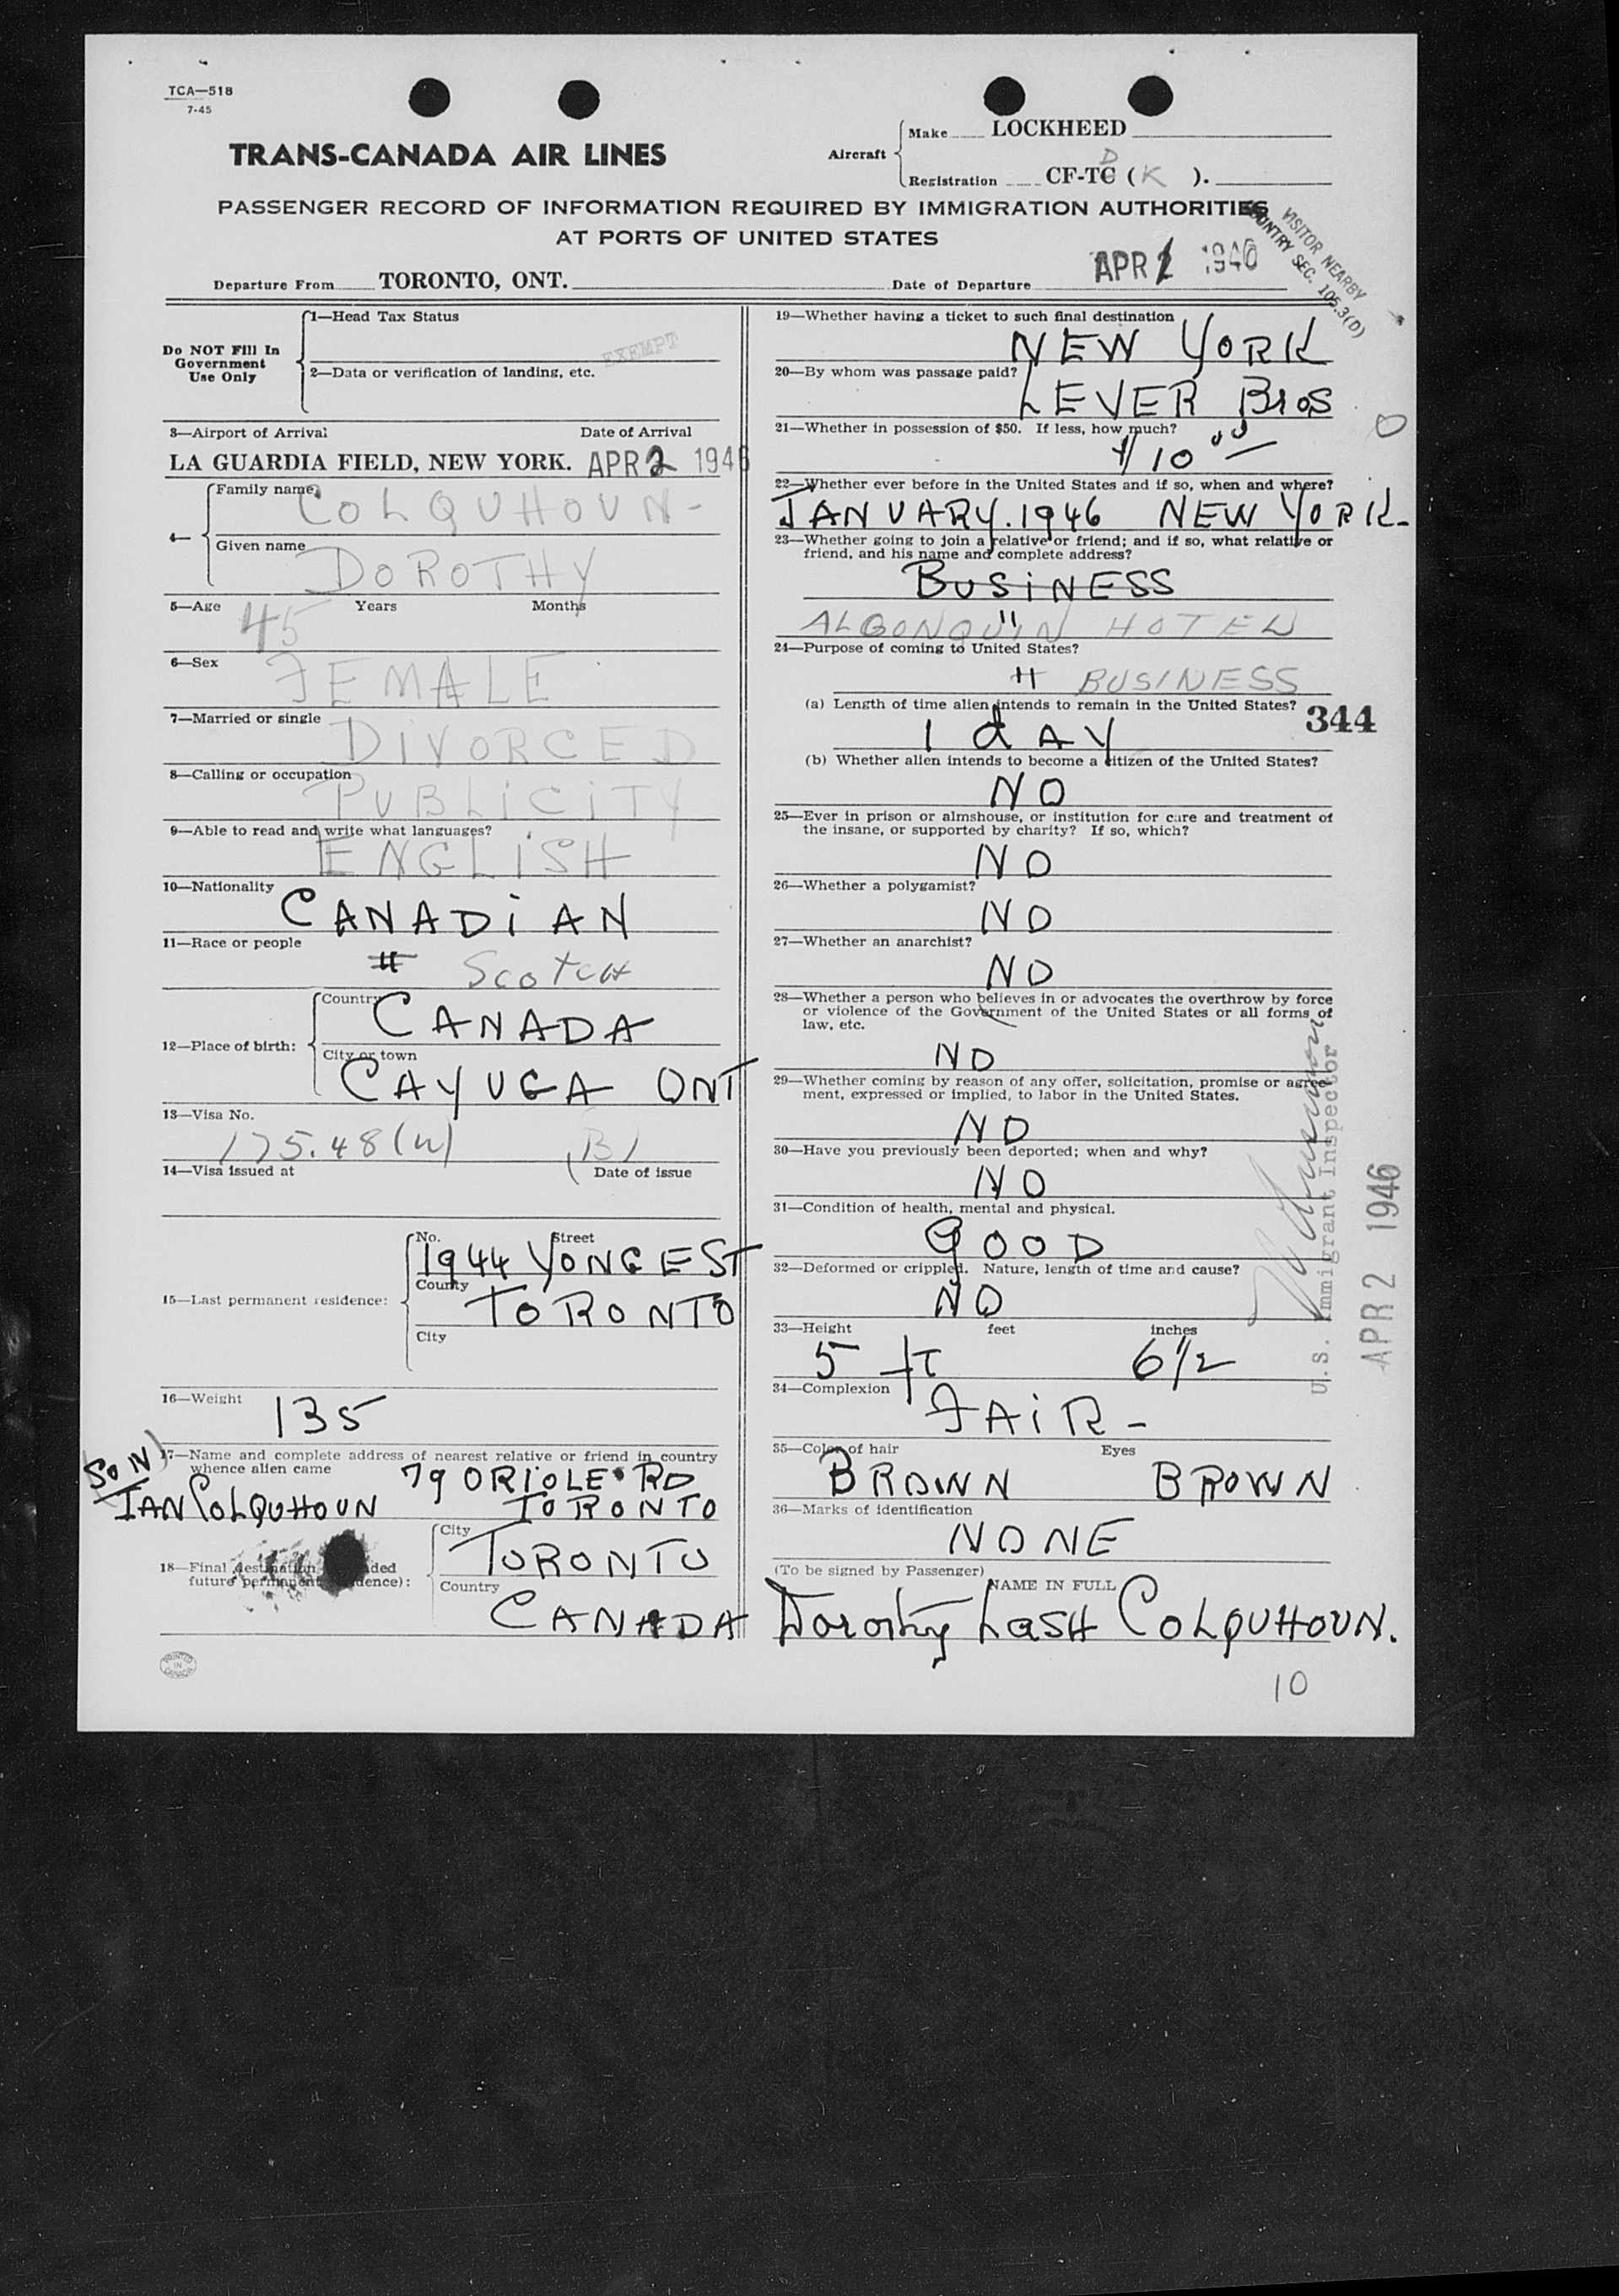 TCA—518
7-45
TRANS-CANADA AIR LINES
Aircraft
Make LOCKHEED
Registration CF-TC D ( K ).
PASSENGER RECORD OF INFORMATION REQUIRED BY IMMIGRATION AUTHORITIES
AT PORTS OF UNITED STATES
VISITOR NEARBY
COUNTRY SEC. 105.3(D)
Departure From TORONTO, ONT. Date of Departure APR 1946
Do NOT Fill In
Government
Use Only
1—Head Tax Status
EXEMPT
2—Data or verification of landing, etc.
3—Airport of Arrival Date of Arrival
LA GUARDIA FIELD, NEW YORK. APR 2 1946
4—
Family name COLQUHOUN-
Given name DOROTHY
5—Age 45 Years Months
6—Sex FEMALE
7—Married or single DIVORCED
8—Calling or occupation PUBLICITY
9—Able to read and write what languages?
ENGLISH
10—Nationality
CANADIAN
11—Race or people
Scotch
12—Place of birth:
Country CANADA
City or town
CAYUGA ONT
13—Visa No.
175.48 (B)
14—Visa issued at Date of issue
15—Last permanent residence:
No. Street
1944 YONGE ST
County
TORONTO
City
16—Weight 135
17—Name and complete address of nearest relative or friend in country
whence alien came
(SON) 79 ORIOLE RD
IAN COLQUHOUN TORONTO
18—Final destination
future permanent
City TORONTO
Country
CANADA
PRINTED
IN
CANADA
19—Whether having a ticket to such final destination
NEW YORK
20—By whom was passage paid?
LEVER Bros
21—Whether in possession of $50. If less, how much?
$10.00
22—Whether ever before in the United States and if so, when and where?
JANUARY. 1946 NEW YORK-
23—Whether going to join a relative or friend; and if so, what relative or
friend, and his name and complete address?
BUSINESS
ALGONQUIN HOTEL
24—Purpose of coming to United States?
" BUSINESS
(a) Length of time alien intends to remain in the United States? 344
1 dAY
(b) Whether alien intends to become a citizen of the United States?
NO
25—Ever in prison or almshouse, or institution for care and treatment of
the insane, or supported by charity? If so, which?
NO
26—Whether a polygamist?
NO
27—Whether an anarchist?
NO
28—Whether a person who believes in or advocates the overthrow by force
or violence of the Government of the United States or all forms of
law, etc.
NO
29—Whether coming by reason of any offer, solicitation, promise or agree-
ment, expressed or implied, to labor in the United States.
NO
30—Have you previously been deported; when and why?
NO
31—Condition of health, mental and physical.
GOOD
32—Deformed or crippled. Nature, length of time and cause?
NO
33—Height feet inches
5 ft 6½
34—Complexion
FAIR-
35—Color of hair Eyes
BROWN BROWN
36—Marks of identification
NONE
(To be signed by Passenger)
NAME IN FULL
Dorothy Lash COLQUHOUN.
U.S. Immigrant Inspector
APR 2 1946
10